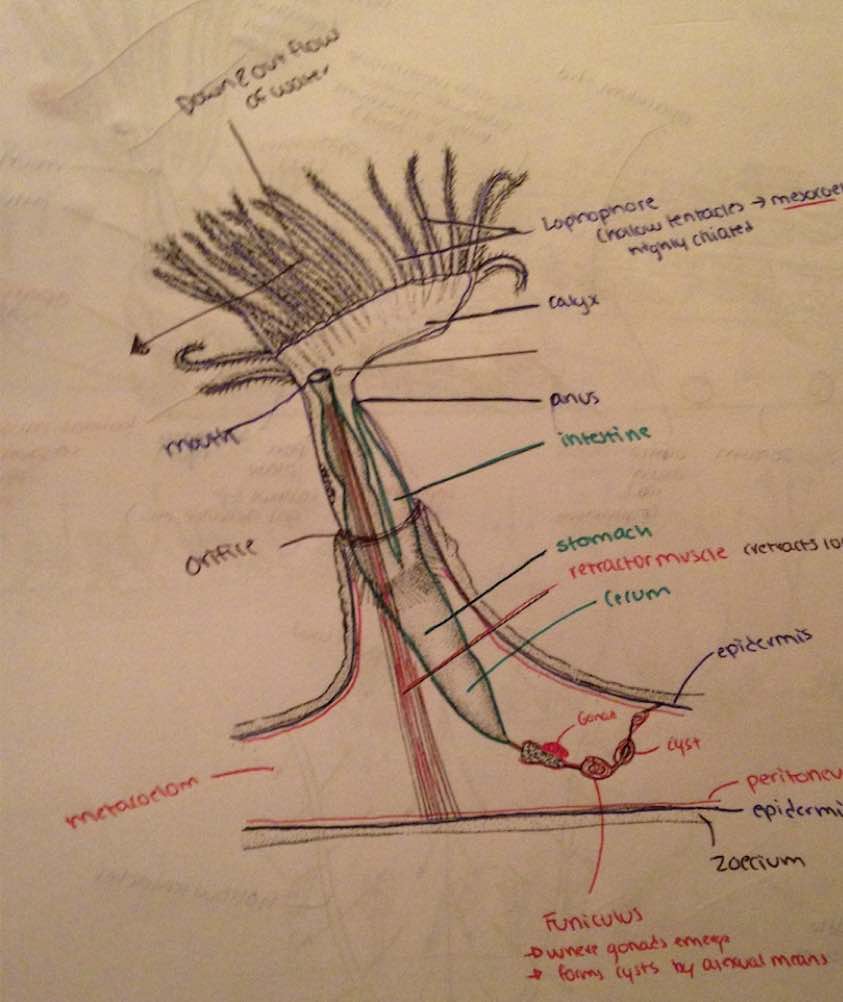 Down & out flow
of water
Lophophore
(hallow tentacles → mesocoel
highly ciliated
calyx
anus
mouth
intestine
orifice
stomach
retractor muscle (retracts lo
cecum
epidermis
Gonad
cyst
metacoelom
peritoneu
epidermi
Zoecium
Funiculus
→ where gonads emerge
→ forms cysts by asexual means